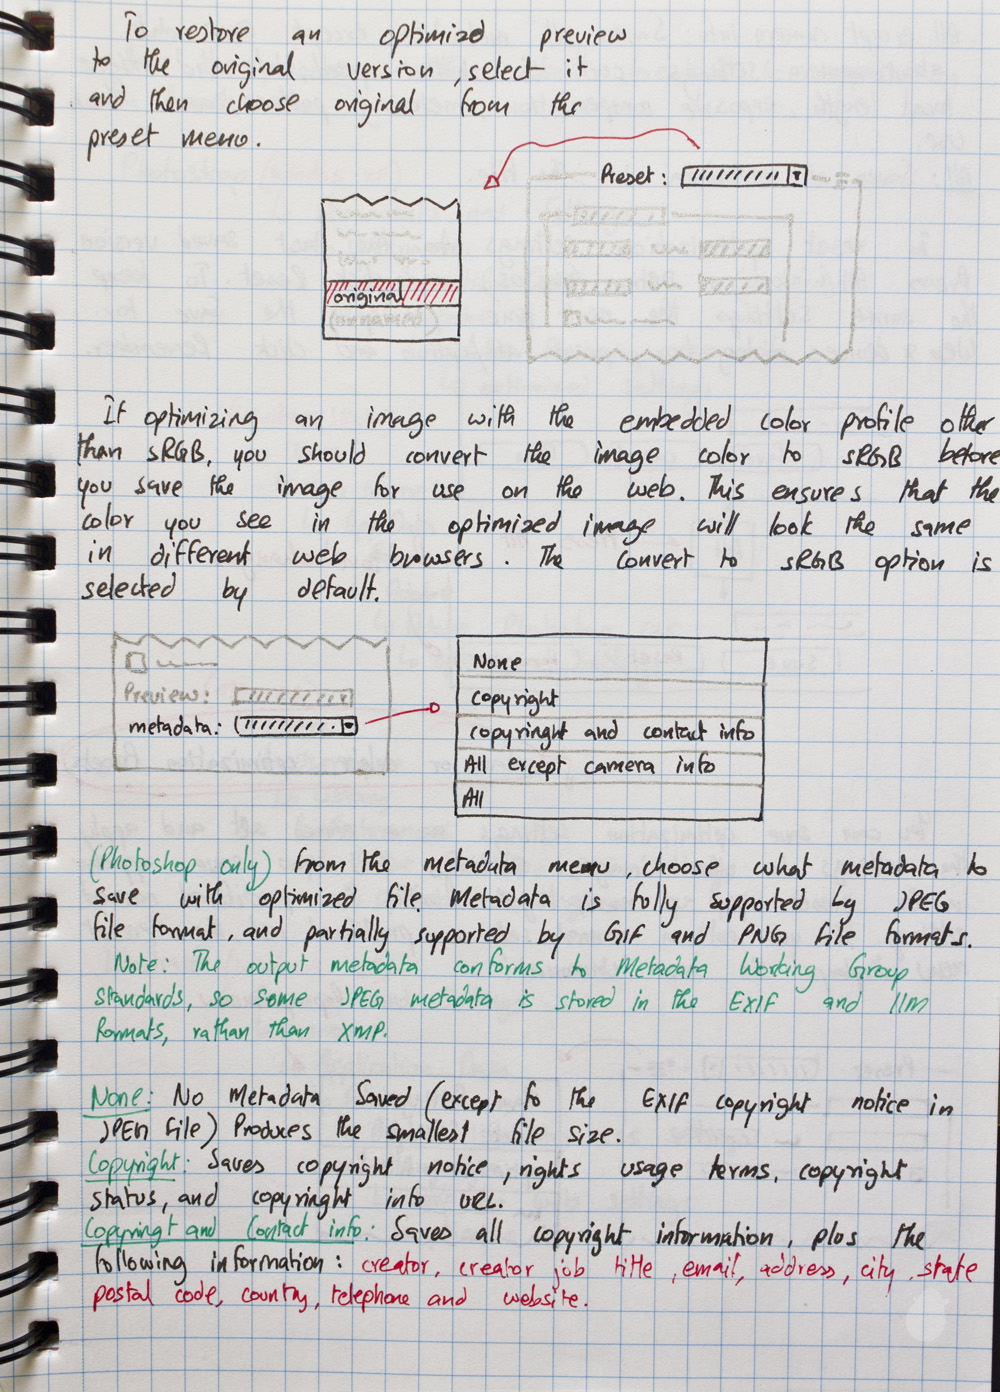 To restore an optimized preview
to the original version, select it
and then choose original from the
preset menu.
Preset:
original
(unnamed)
If optimizing an image with the embedded color profile other
than sRGB, you should convert the image color to sRGB before
you save the image for use on the web. This ensures that the
color you see in the optimized image will look the same
in different web browsers. The convert to sRGB option is
selected by default.
Preview:
metadata:
None
copyright
copyringht and contact info
All except camera info
All
(Photoshop only) from the metadata menu, choose what metadata to
save with optimized file. Metadata is fully supported by JPEG
file format, and partially supported by GIF and PNG file formats.
Note: The output metadata conforms to Metadata Working Group
standards, so some JPEG metadata is stored in the EXIF and IIM
formats, rathan than XMP.
None: No Metadata Saved (except to the EXIF copyright notice in
JPEG file) Produces the smallest file size.
Copyright: Saves copyright notice, rights usage terms, copyright
status, and copyringht info URL.
Copyringt and Contact info: Saves all copyright information, plus the
following information: creator, creator job title, email, address, city, state
postal code, country, telephone and website.